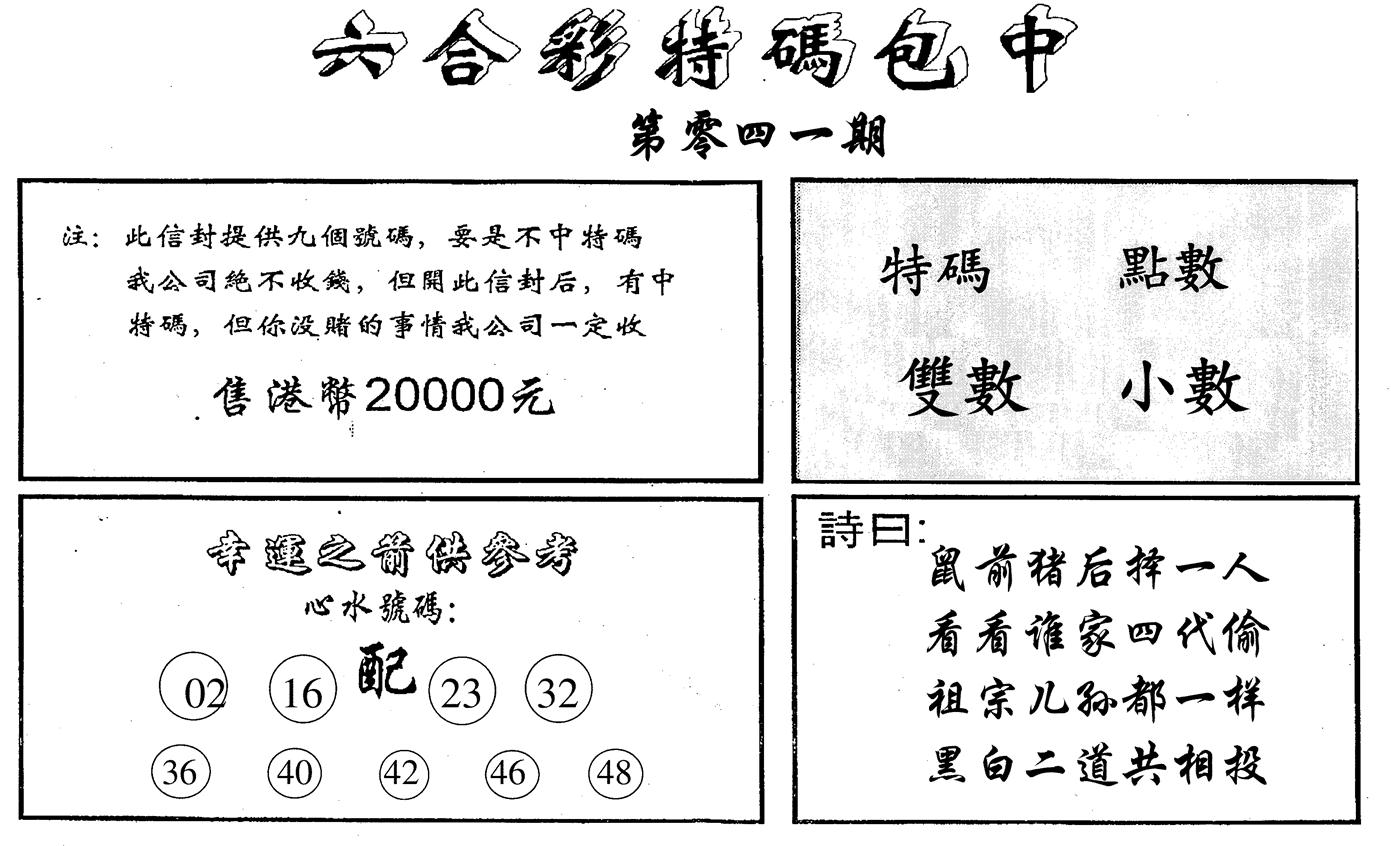 六合彩特碼包中
第零四一期
注：此信封提供九個號碼，要是不中特碼
我公司絶不收錢，但開此信封后，有中
特碼，但你没賭的事情我公司一定收
售港幣20000元
特碼 點數
雙數 小數
幸運之箭供參考
心水號碼：
02 16 配 23 32
36 40 42 46 48
詩曰：
鼠前猪后择一人
看看谁家四代偷
祖宗儿孙都一样
黑白二道共相投